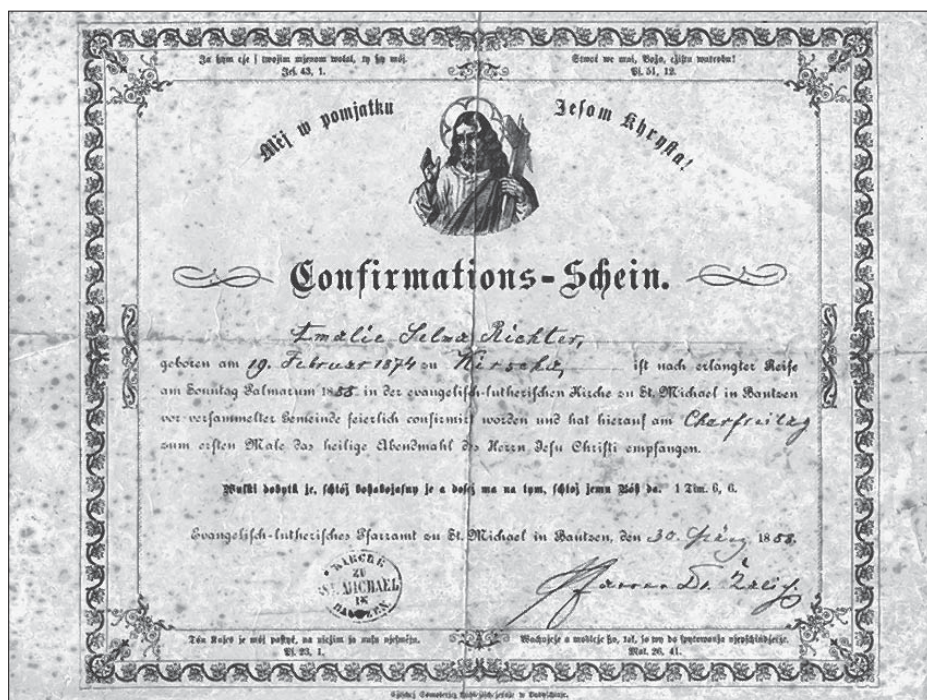 Ja ßym cże z twojim mjenom wołał, ty ßy mój.
Jes. 43, 1.
Stwoŕ we mni, Božo, cżistu wutrobu!
Pſ. 51, 12.
Měj w pomjatku Jeſom Khryſta!
Confirmations-Schein.
Emalie Selma Richter,
geboren am 19. Februar 1874 zu iſt nach erlangter Reife
am Sonntag Palmarum 1888 in der evangeliſch-lutheriſchen Kirche zu St. Michael in Bautzen
vor verſammelter Gemeinde feierlich confirmirt worden und hat hierauf am Charfreitag
zum erſten Male das heilige Abendmahl des Herrn Jeſu Chriſti empfangen.
Wulki dobytk je, ſchtóż bohabojaſny je a doſcź ma na tym, ſchtoż jemu Bóh da. 1 Tim. 6, 6.
Evangeliſch-lutheriſches Pfarramt zu St. Michael in Bautzen, den 30. März 1888.
KIRCHE
ZU
ST. MICHAEL
IN
BAUTZEN.
Pfarrer Dr.
Tón Knjes je mój paſtyŕ, na nicżim ja nuzu njeſmeju.
Pſ. 23, 1.
Wachujcże a modlcże ßo, ſo wy do ſpytowanja njepſchińdżecże.
Mat. 26, 41.